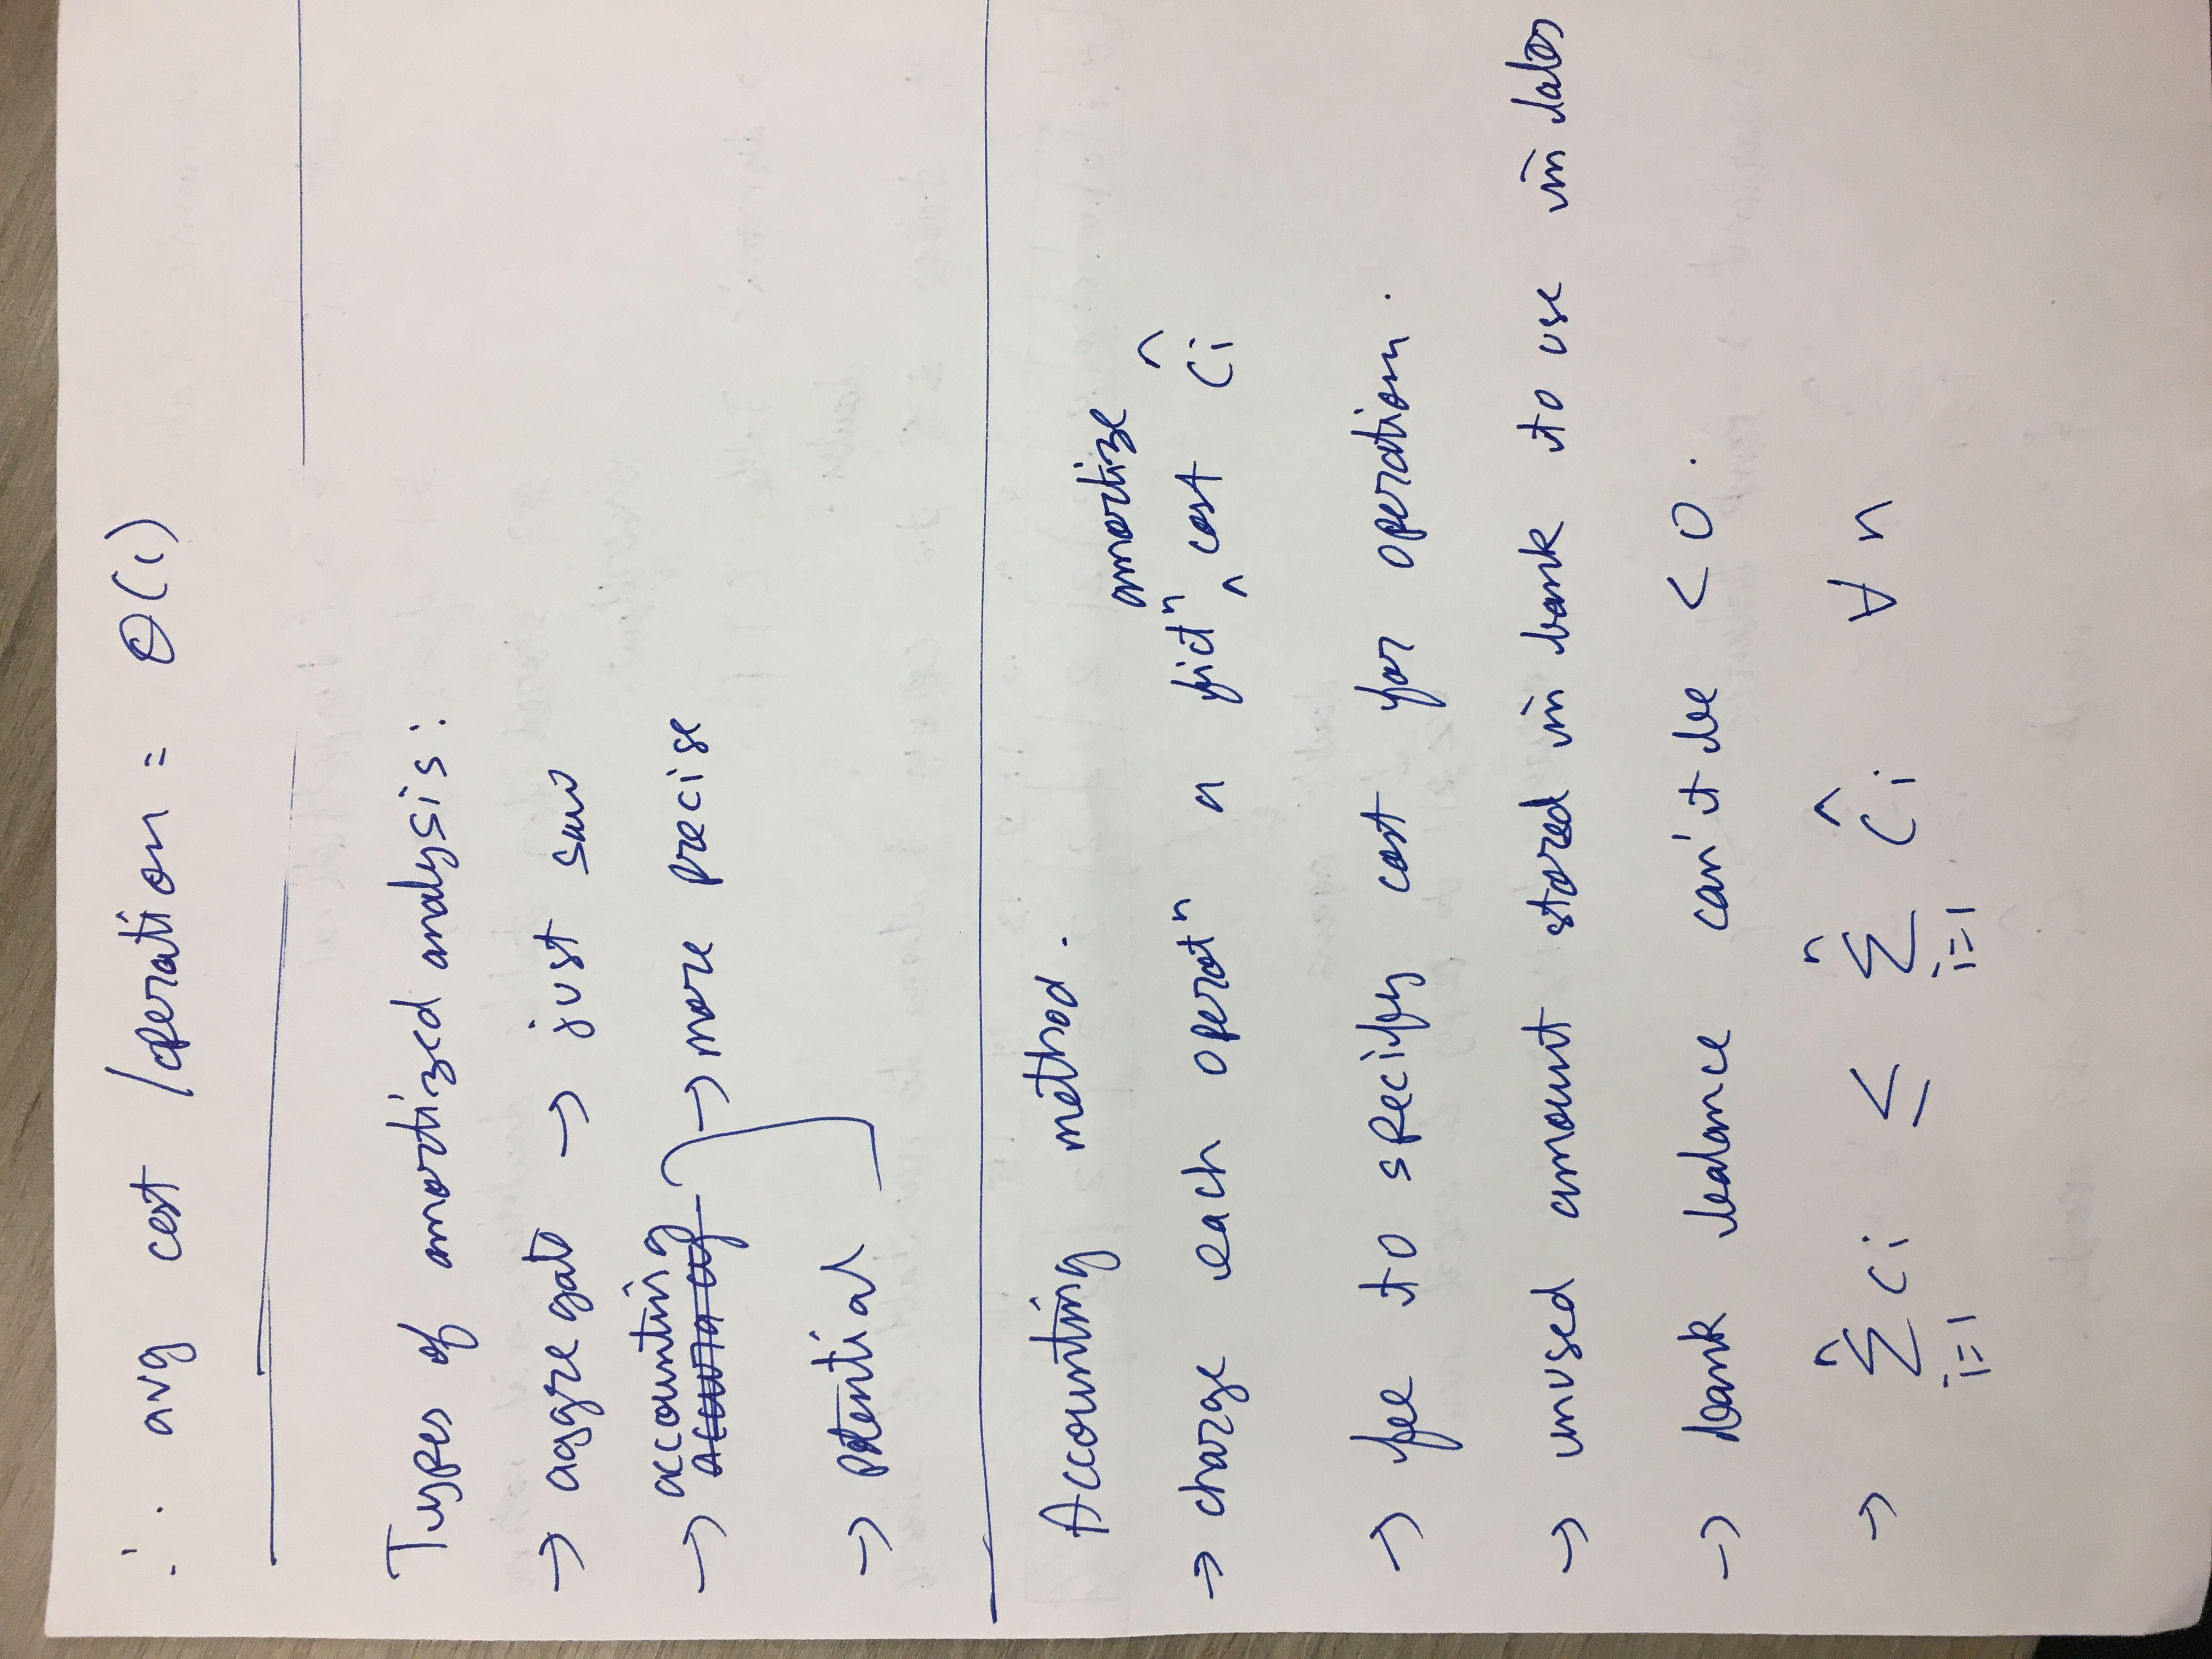 ∴ avg cost /operation = Θ(1)
Types of amortized analysis:
→ aggregate → just saw
→ accounting → more precise
→ potential
Accounting method.
amortize
→ charge each operatⁿ a fictⁿ ^ cost ĉi
→ fee to specify cost for operation.
→ unused amount stored in bank to use in later
→ bank balance can't be < 0.
→ n∑i=1 ci ≤ n∑i=1 ĉi ∀ n